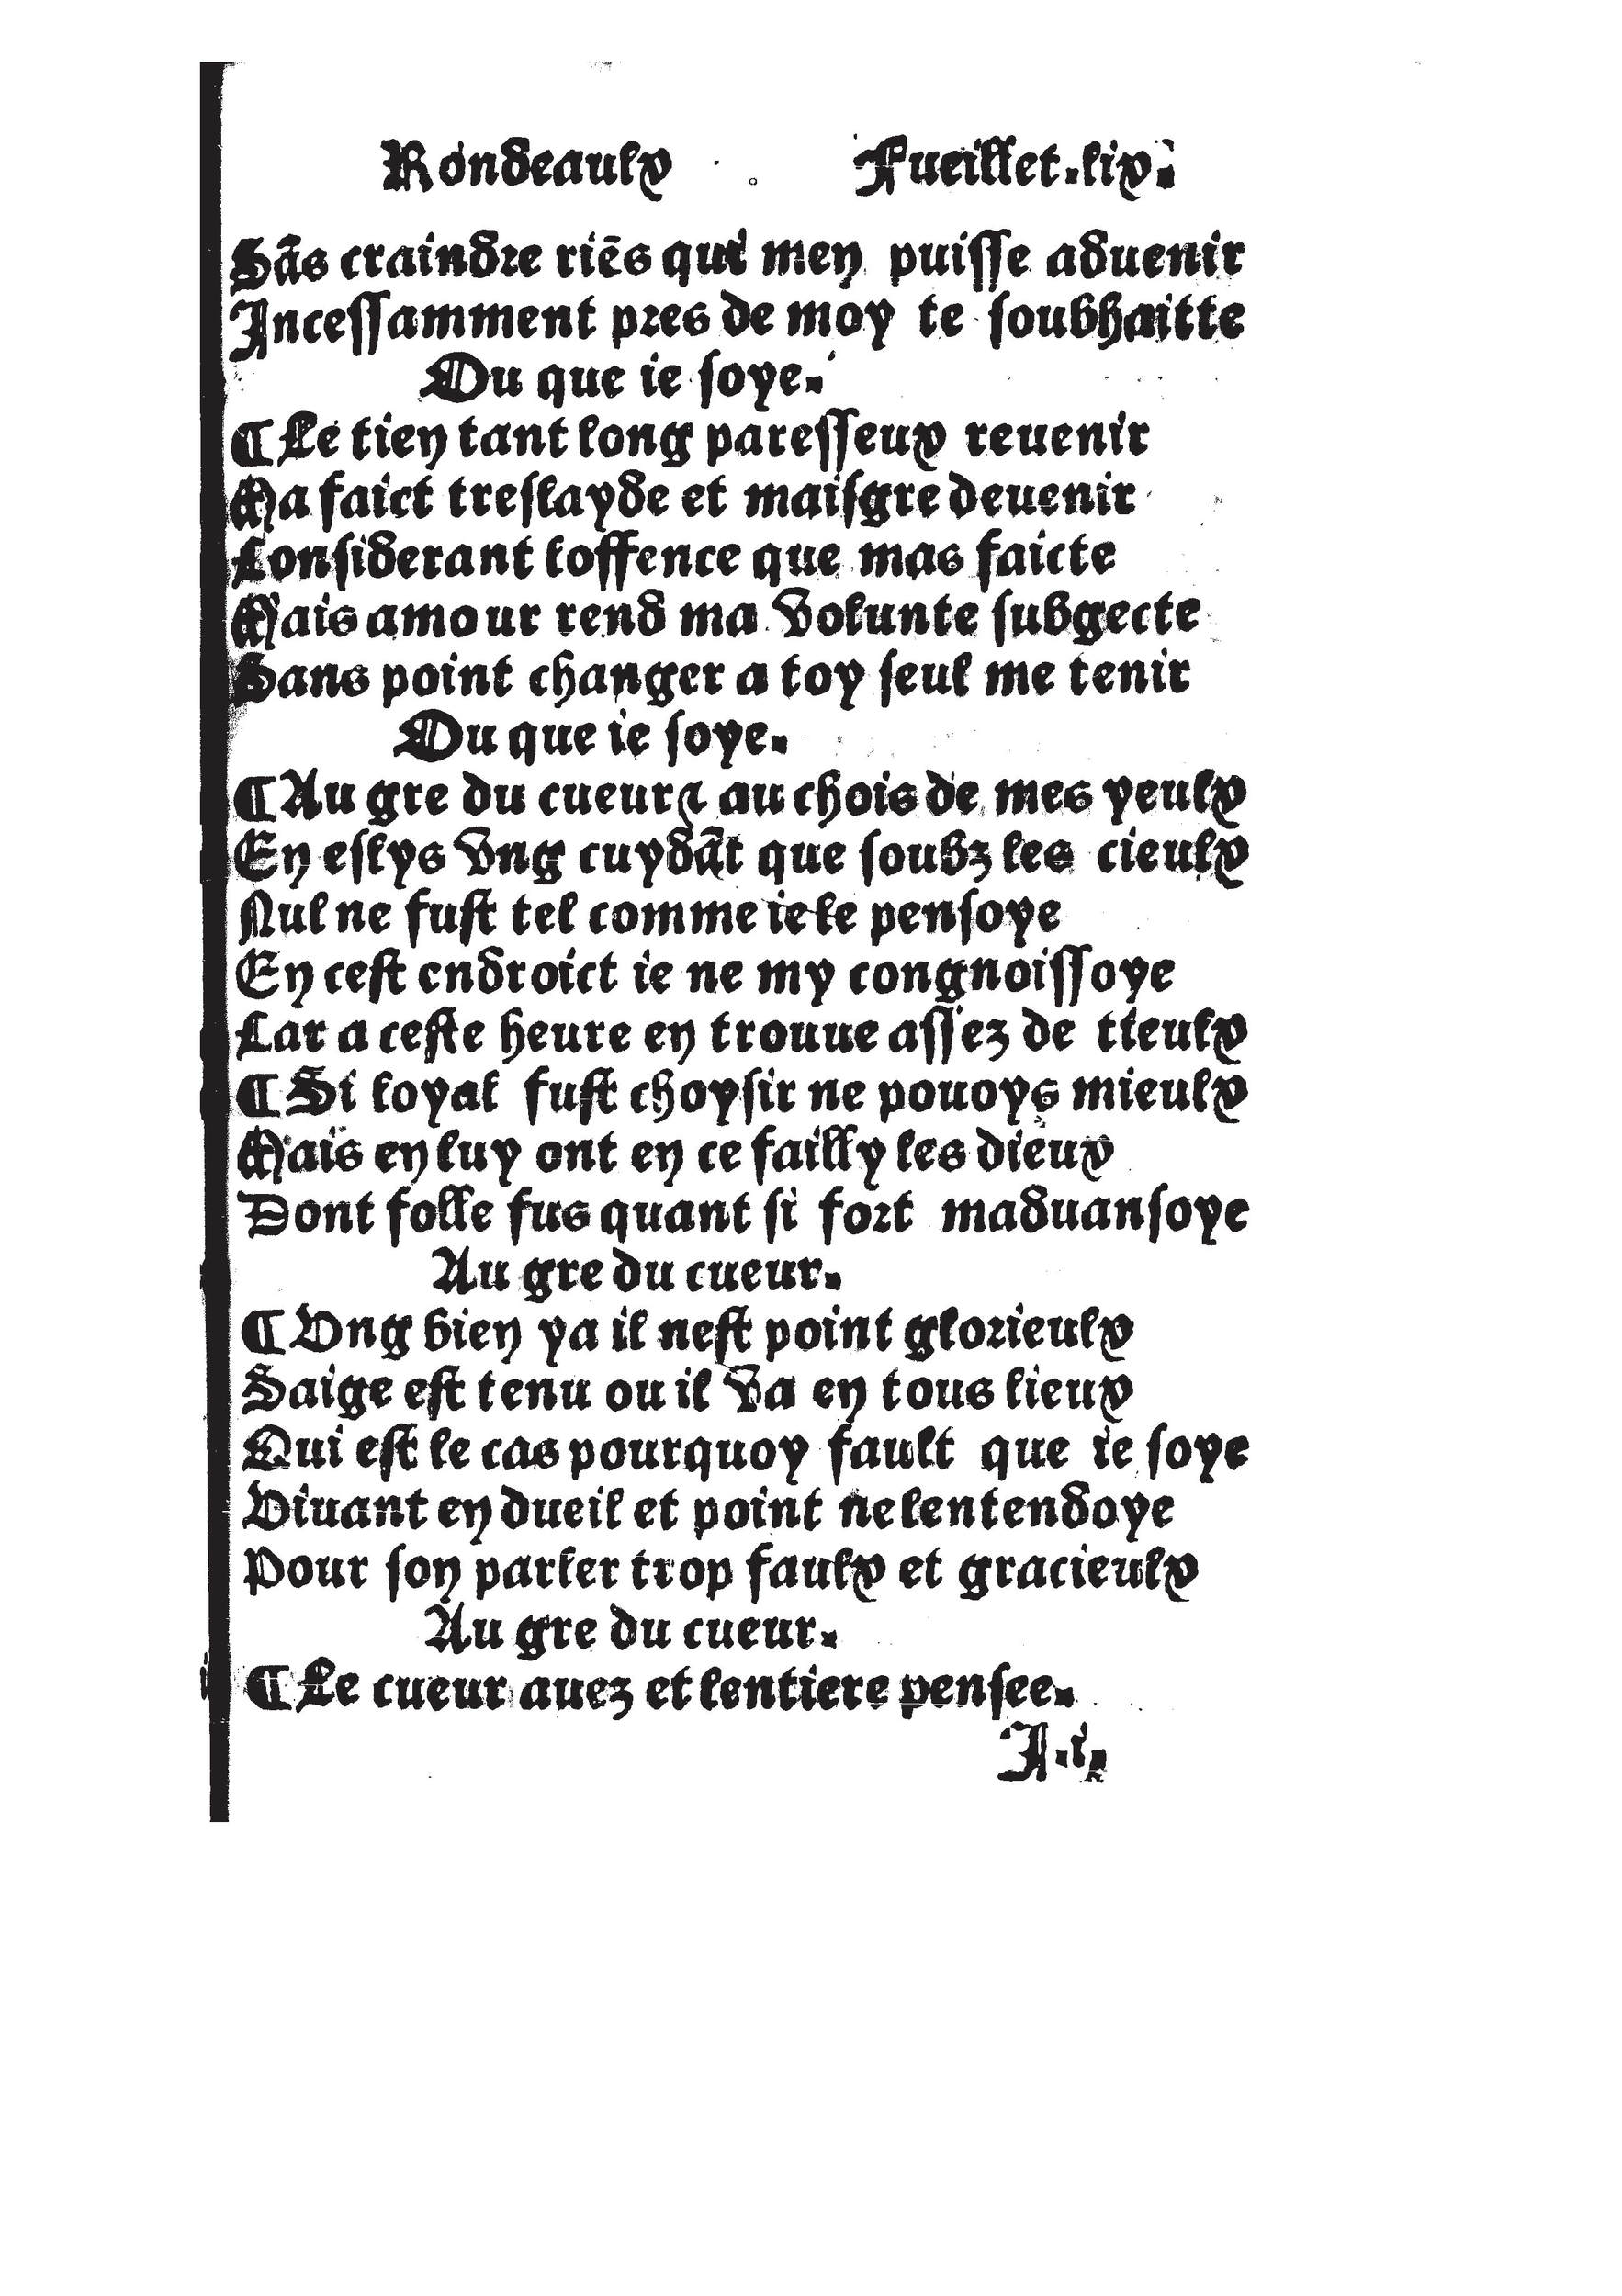 Rondeaulx Fueillet.lix.
Sãs craindre riẽs qui men puisse aduenir
Incessamment pres de moy te soubhaitte
Ou que ie soye.
¶ Le tien tant long paresseux reuenir
Ma faict treslayde et maisgre deuenir
Considerant loffence que mas faicte
Mais amour rend ma volunte subgecte
Sans point changer a toy seul me tenir
Ou que ie soye.
¶ Au gre du cueur ⁊ au chois de mes yeulx
En eslys vng cuydãt que soubz les cieulx
Nul ne fust tel comme ie le pensoye
En cest endroict ie ne my congnoissoye
Car a ceste heure en trouue assez de tieulx
¶ Si loyal fust choysir ne pouoys mieulx
Mais en luy ont en ce failly les dieux
Dont folle fus quant si fort maduansoye
Au gre du cueur.
¶ Vng bien ya il nest point glorieulx
Saige est tenu ou il va en tous lieux
Qui est le cas pourquoy fault que ie soye
Viuant en dueil et point ne lentendoye
Pour son parler trop faulx et gracieulx
Au gre du cueur.
¶ Le cueur auez et lentiere pensee.
I.i.